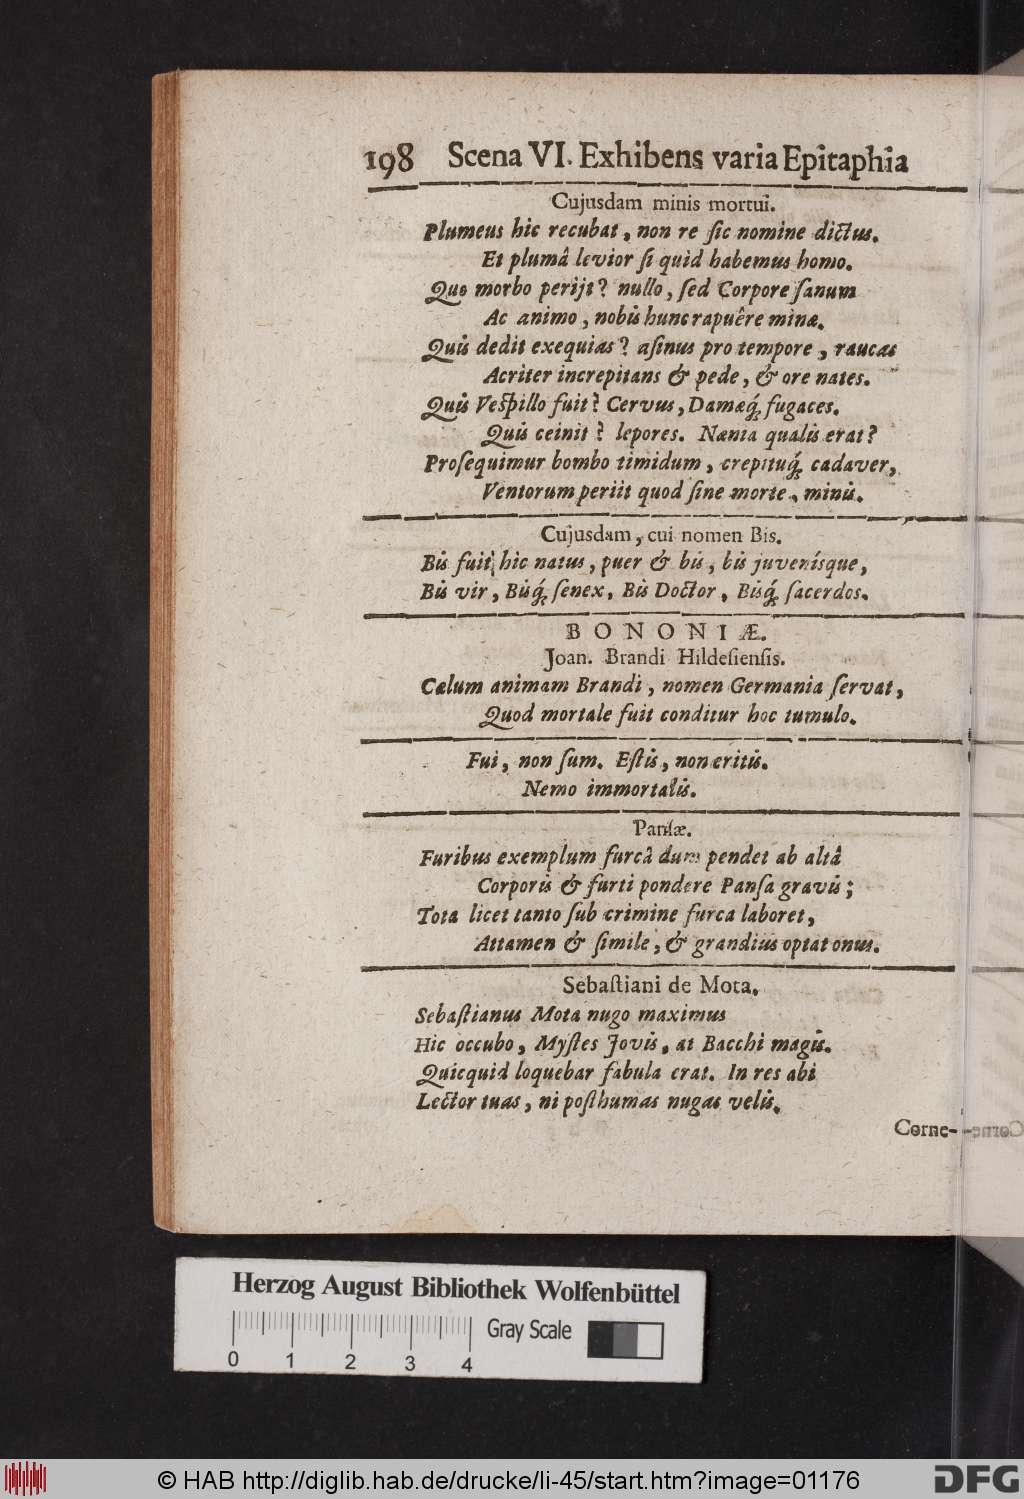 198 Scena VI. Exhibens varia Epitaphia
Cujusdam minis mortui.
Plumeus hic recubat, non re ſic nomine dictus.
Et plumâ levior ſi quid habemus homo.
Quo morbo perijt? nullo, ſed Corpore ſanum
Ac animo, nobis hunc rapuêre minæ.
Quis dedit exequias? aſinus pro tempore, raucas
Acriter increpitans & pede, & ore nates.
Quis Veſpillo fuit? Cervus, Damæq́; fugaces.
Quis ceinit? lepores. Nænia qualis erat?
Proſequimur bombo timidum, crepituq́; cadaver,
Ventorum periit quod ſine morte, minis.
Cujusdam, cui nomen Bis.
Bis fuit hic natus, puer & bis, bis juvenísque,
Bis vir, Bisq́; ſenex, Bis Doctor, Bisq́; ſacerdos.
BONONIÆ.
Joan. Brandi Hildeſienſis.
Cælum animam Brandi, nomen Germania ſervat,
Quod mortale fuit conditur hoc tumulo.
Fui, non ſum. Eſtis, non eritis.
Nemo immortalis.
Panſæ.
Furibus exemplum furcâ dum pendet ab altâ
Corporis & furti pondere Panſa gravis;
Tota licet tanto ſub crimine furca laboret,
Attamen & ſimile, & grandius optat onus.
Sebaſtiani de Mota.
Sebaſtianus Mota nugo maximus
Hic occubo, Myſtes Jovis, at Bacchi magis.
Quicquid loquebar fabula erat. In res abi
Lector tuas, ni poſthumas nugas velis.
Corne-
Herzog August Bibliothek Wolfenbüttel
Gray Scale
0 1 2 3 4
© HAB http://diglib.hab.de/drucke/li-45/start.htm?image=01176
DFG